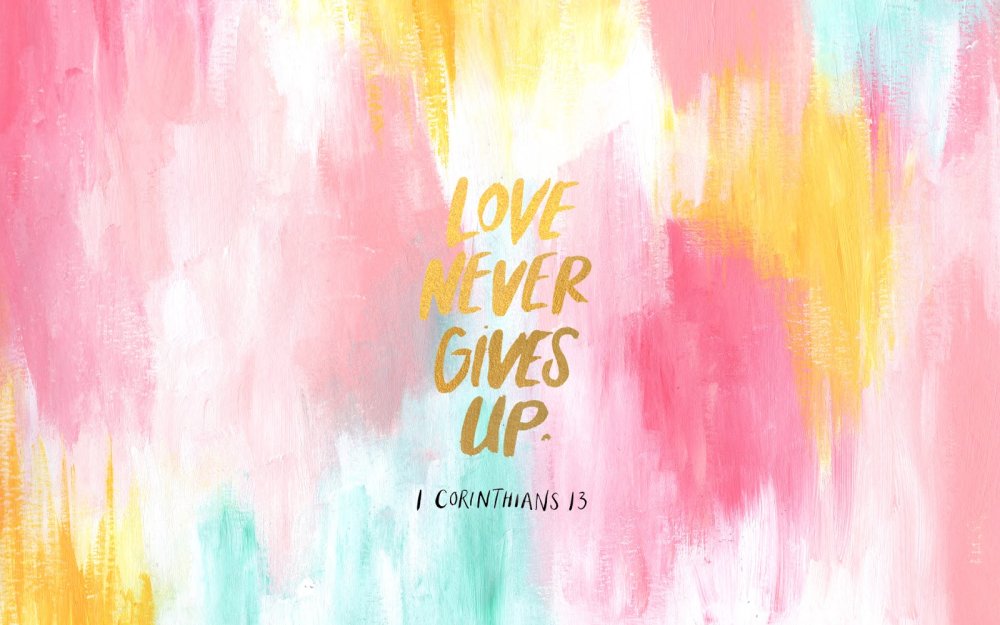 LOVE
NEVER
GiVES
UP.
1 CORINTHIANS 13